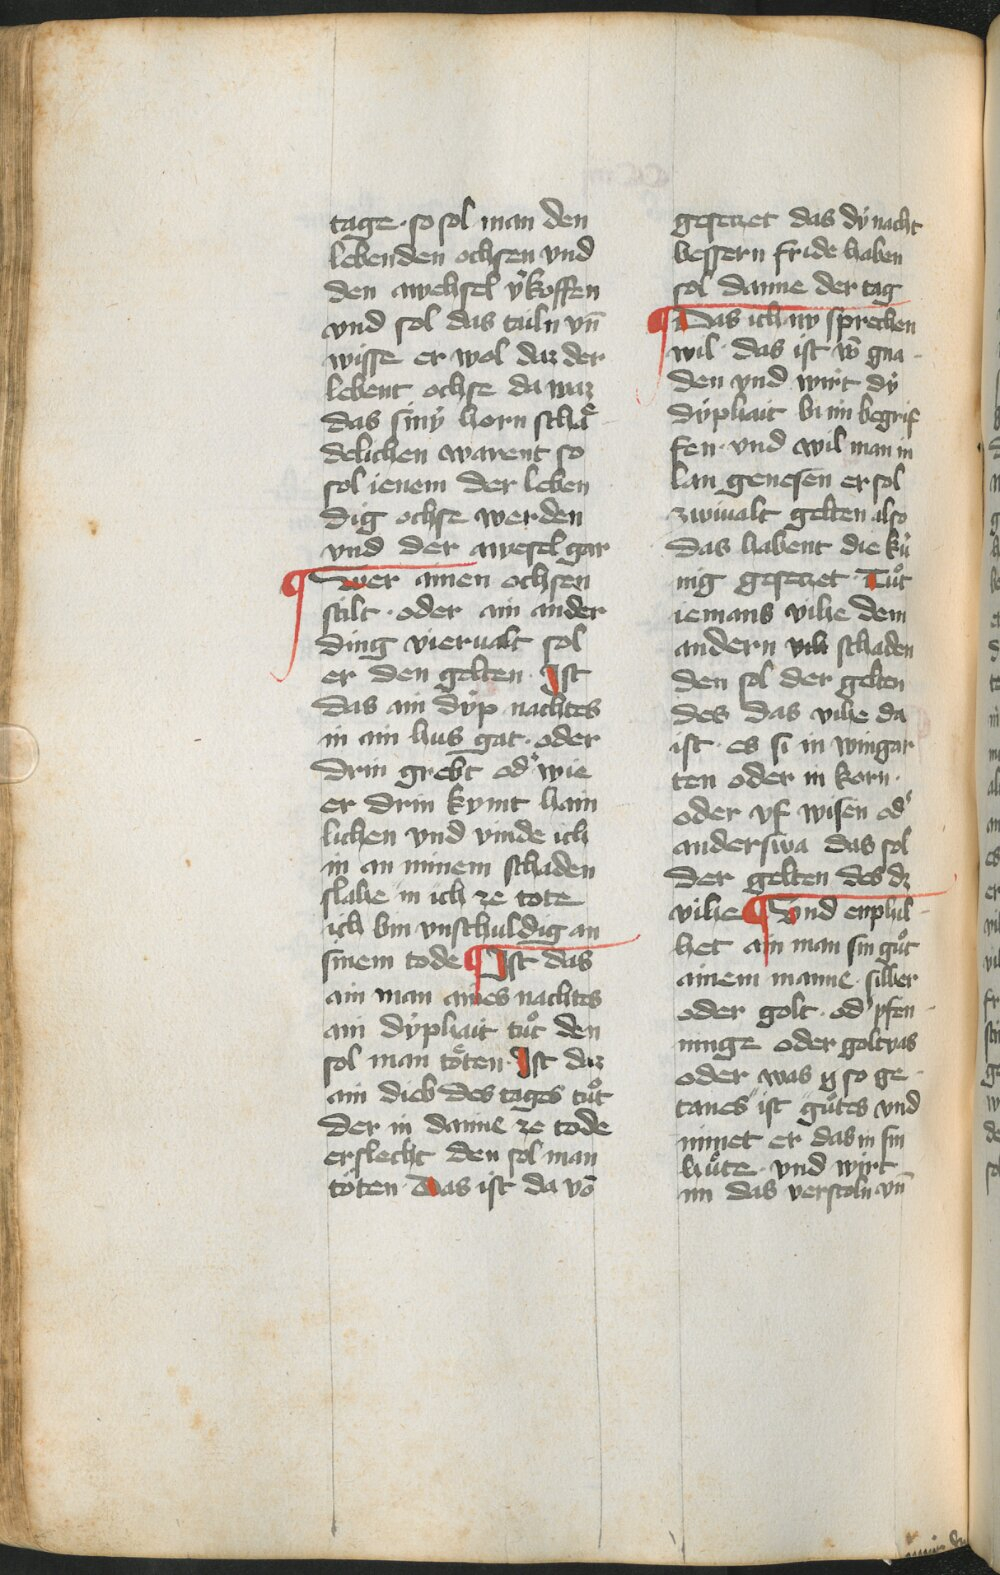 tage · so sol man den
lebenden ochsen vnd
den wehsel v͛koffen
vnd sol das tailn vn̄
wisse er wol daz der
lebent ochse da waz
das sinv̈ horn schaͤ
delichen warent so
sol ienem der leben
dig ochse werden
vnd der wesel gar
¶ Wer ainen ochsen
stilt · oder ain ander
ding viervalt sol
er den gelten · Ist
das ain dÿp nachtes
in ain hus gat · oder
drin grebt od͛ wie
er drin kvmt hain
lichen vnd vinde ich
in an minem schaden
slahe in ich ze tote
ich bin vnschuldig an
sinem tode ¶ Ist das
ain man aines nachtes
ain dÿphait tuͦt den
sol man toͤten · Ist daz
ain dieb des tages tuͦt
der in danne ze tode
erslecht den sol man
toͤten · Das ist da vō
gesetzet das dÿ nacht
bessern fride haben
sol danne der tag
¶ Das ich nv sprechen
wil · das ist vō gna
den vnd wirt dÿ
dÿphait bi im begrif
fen · vnd wil man in
lan genesen er sol
zwivalt gelten also
das habent die kuͥ
nig gesetzet · Tuͦt
iemans vihe dem
andern schaden
den sol der gelten
des das vihe da
ist · es si in wingar
ten oder in korn ·
oder vf wisen od͛
anderswa das sol
der gelten des dz
vihe ¶ Vnd enphil
het ain man sin guͦt
ainem manne · silber
oder golt · od͛ pfen
ninge oder goltvas
oder was so ge
tanes ist guͤtes vnd
nimet er das in sin
huͤte · vnd wirt
im das verstoln vn̄